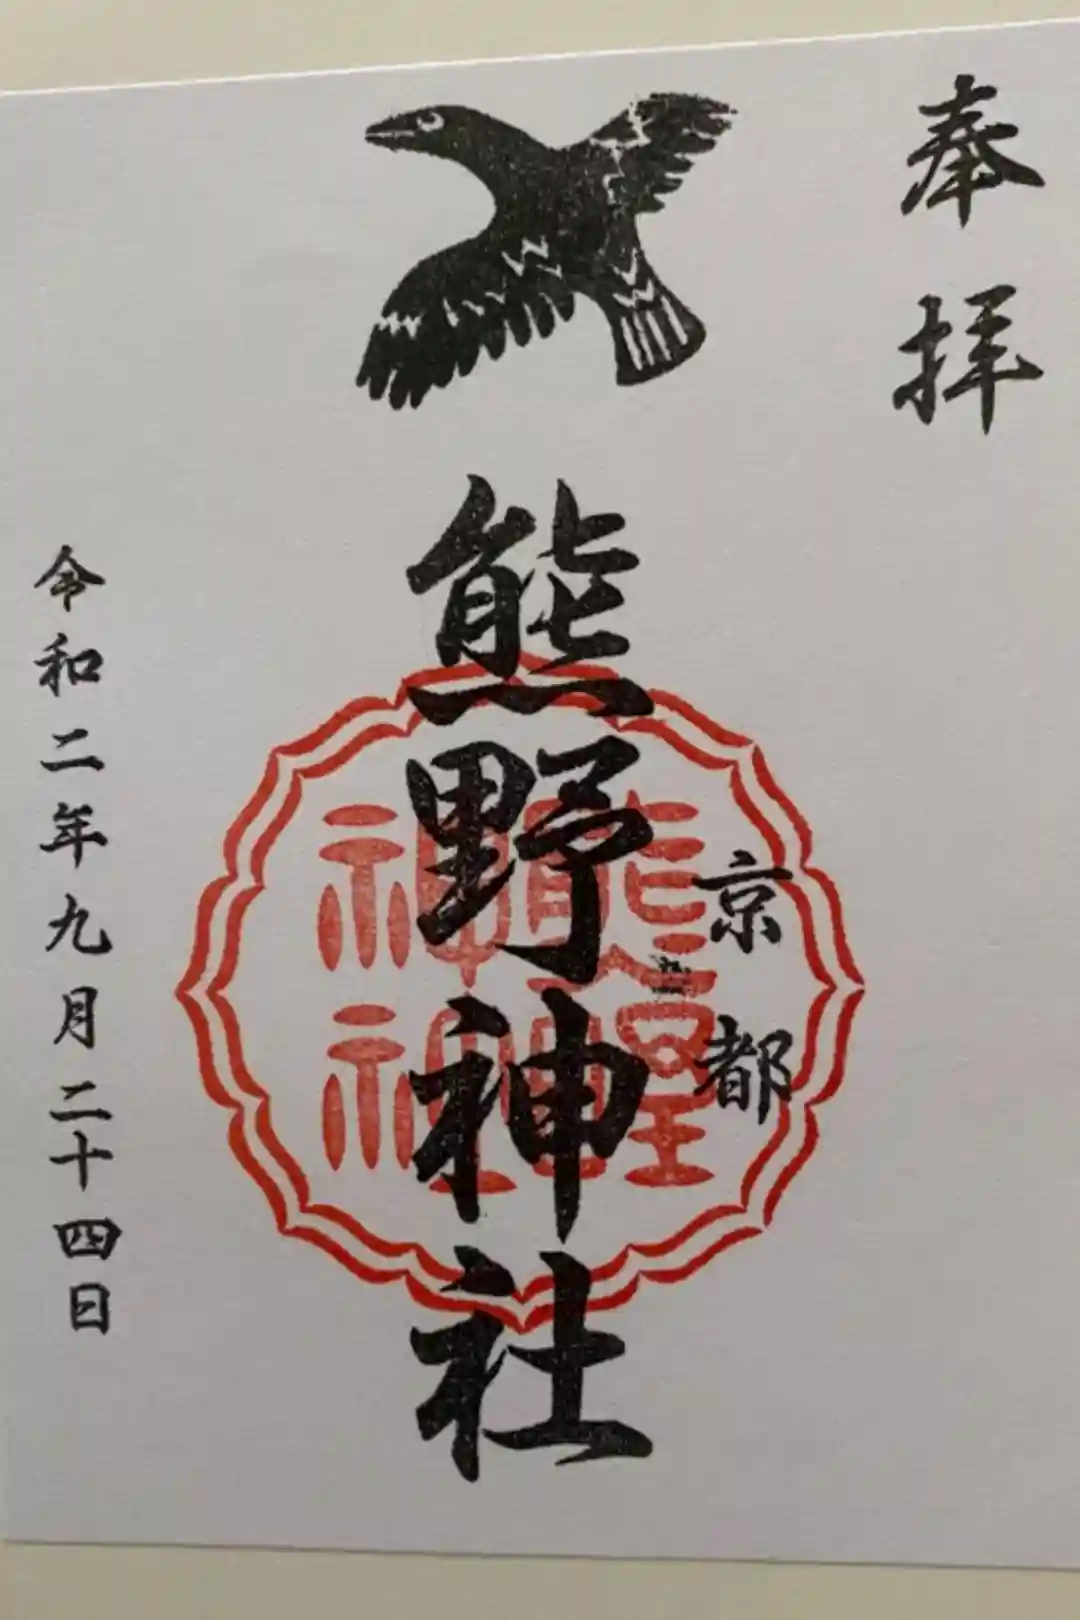 奉拝
京都
熊野神社
令和二年九月二十四日